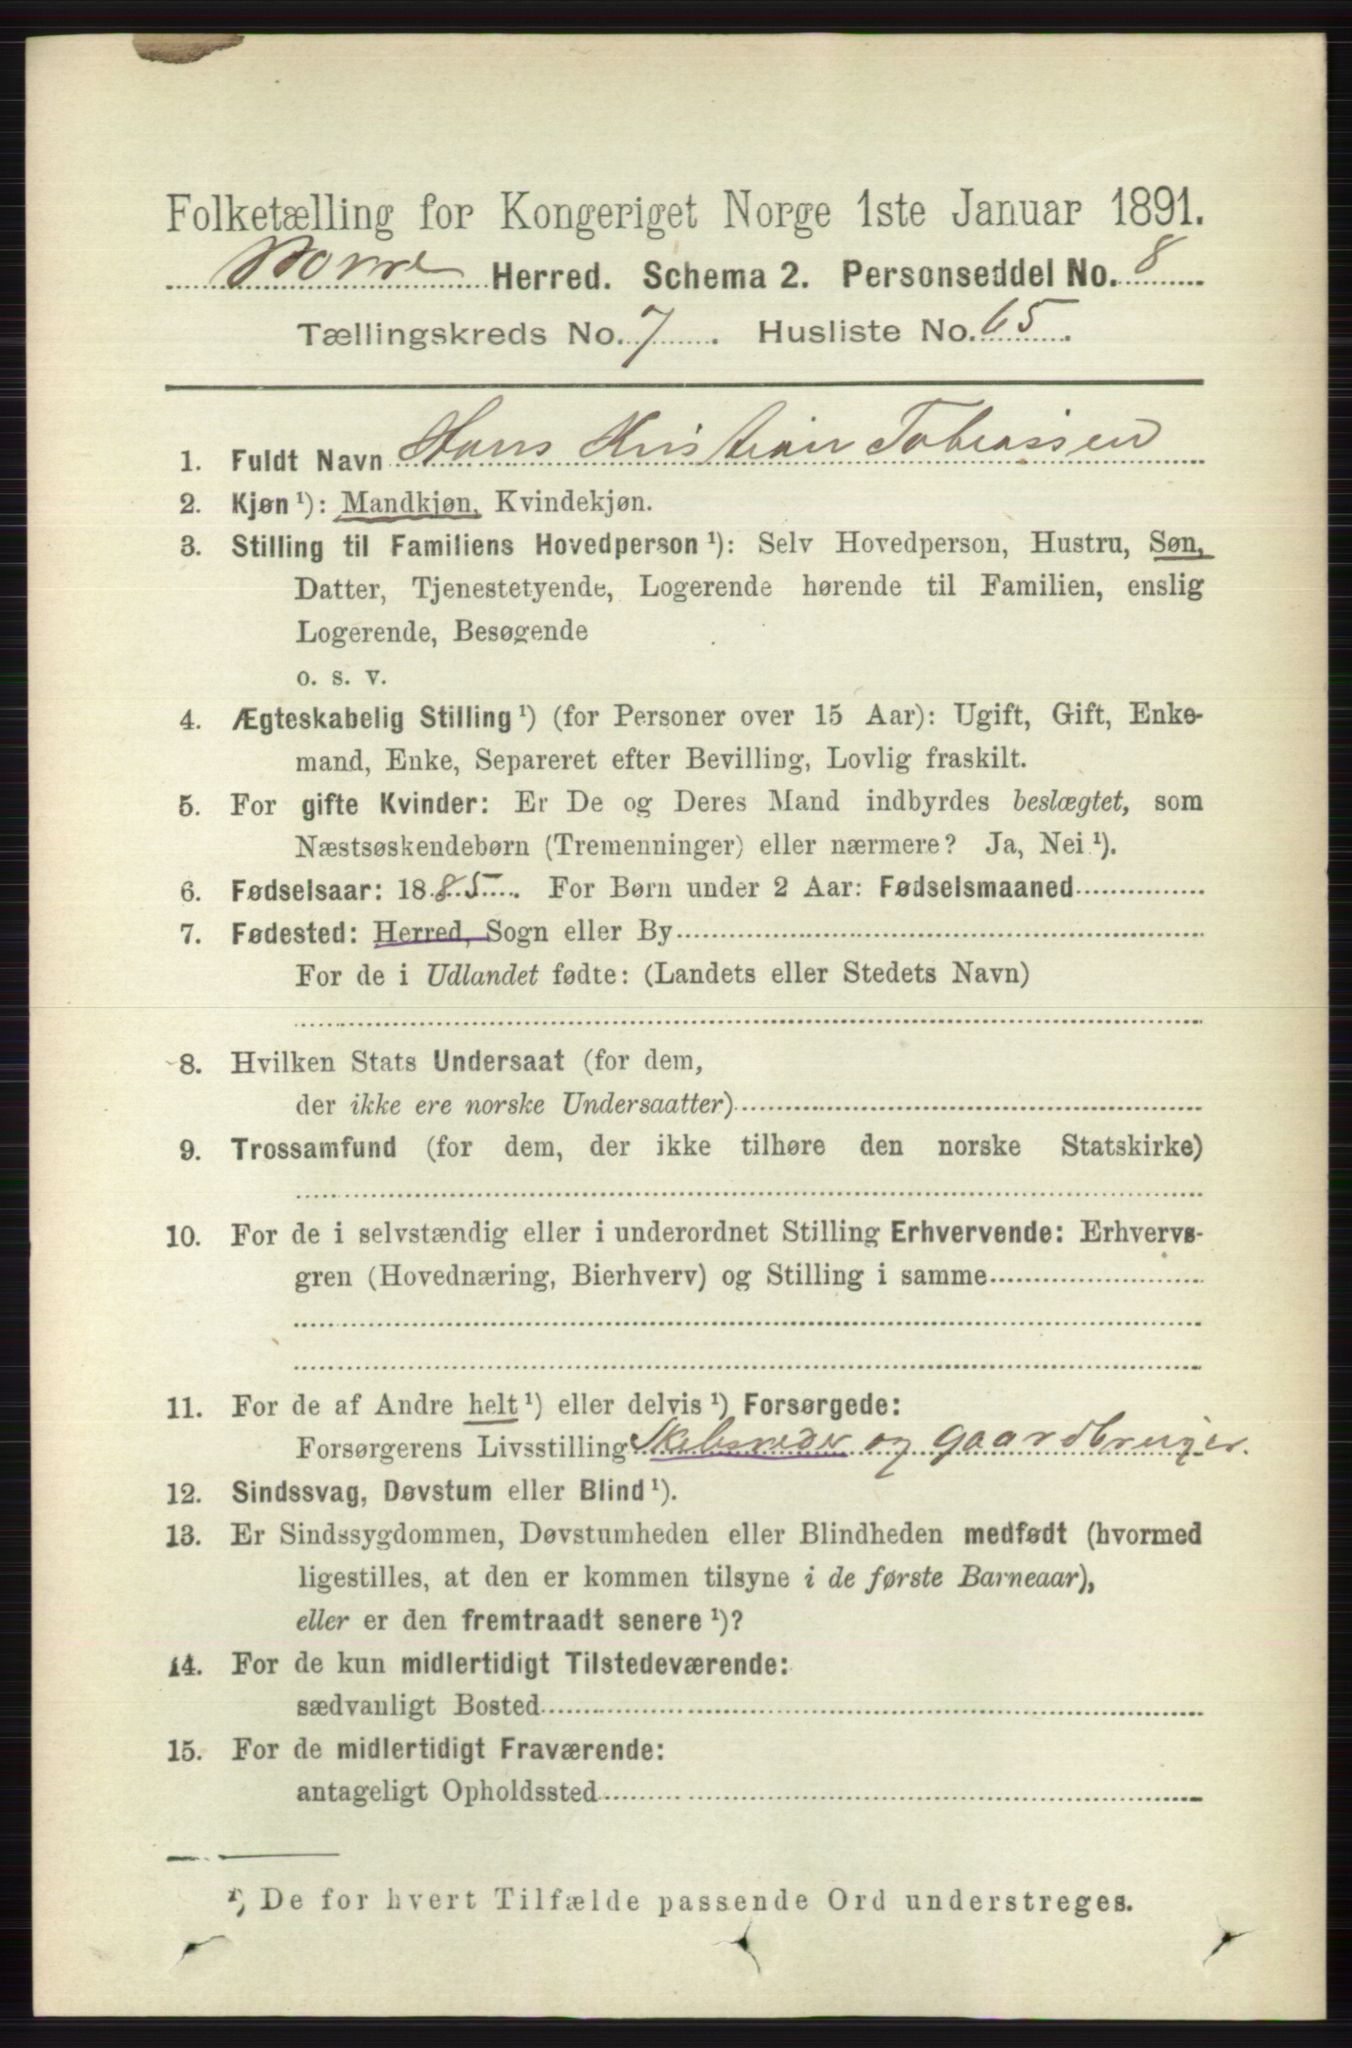 Folketælling for Kongeriget Norge 1ste Januar 1891.
Borre Herred. Schema 2. Personseddel No. 8
Tællingskreds No. 7. Husliste No. 65.
1. Fuldt Navn Hans Kristian Tobiassen
2. Kjøn ¹): Mandkjøn, Kvindekjøn.
3. Stilling til Familiens Hovedperson ¹): Selv Hovedperson, Hustru, Søn,
Datter, Tjenestetyende, Logerende hørende til Familien, enslig
Logerende, Besøgende
o. s. v.
4. Ægteskabelig Stilling ¹) (for Personer over 15 Aar): Ugift, Gift, Enke-
mand, Enke, Separeret efter Bevilling, Lovlig fraskilt.
5. For gifte Kvinder: Er De og Deres Mand indbyrdes beslægtet, som
Næstsøskendebørn (Tremenninger) eller nærmere? Ja, Nei ¹).
6. Fødselsaar: 1885. For Børn under 2 Aar: Fødselsmaaned
7. Fødested: Herred, Sogn eller By
For de i Udlandet fødte: (Landets eller Stedets Navn)
8. Hvilken Stats Undersaat (for dem,
der ikke ere norske Undersaatter)
9. Trossamfund (for dem, der ikke tilhøre den norske Statskirke)
10. For de i selvstændig eller i underordnet Stilling Erhvervende: Erhvervs-
gren (Hovednæring, Bierhverv) og Stilling i samme
11. For de af Andre helt ¹) eller delvis ¹) Forsørgede:
Forsørgerens Livsstilling Skibsreder og Gaardbruger.
12. Sindssvag, Døvstum eller Blind ¹).
13. Er Sindssygdommen, Døvstumheden eller Blindheden medfødt (hvormed
ligestilles, at den er kommen tilsyne i de første Barneaar),
eller er den fremtraadt senere ¹)?
14. For de kun midlertidigt Tilstedeværende:
sædvanligt Bosted
15. For de midlertidigt Fraværende:
antageligt Opholdssted
¹) De for hvert Tilfælde passende Ord understreges.